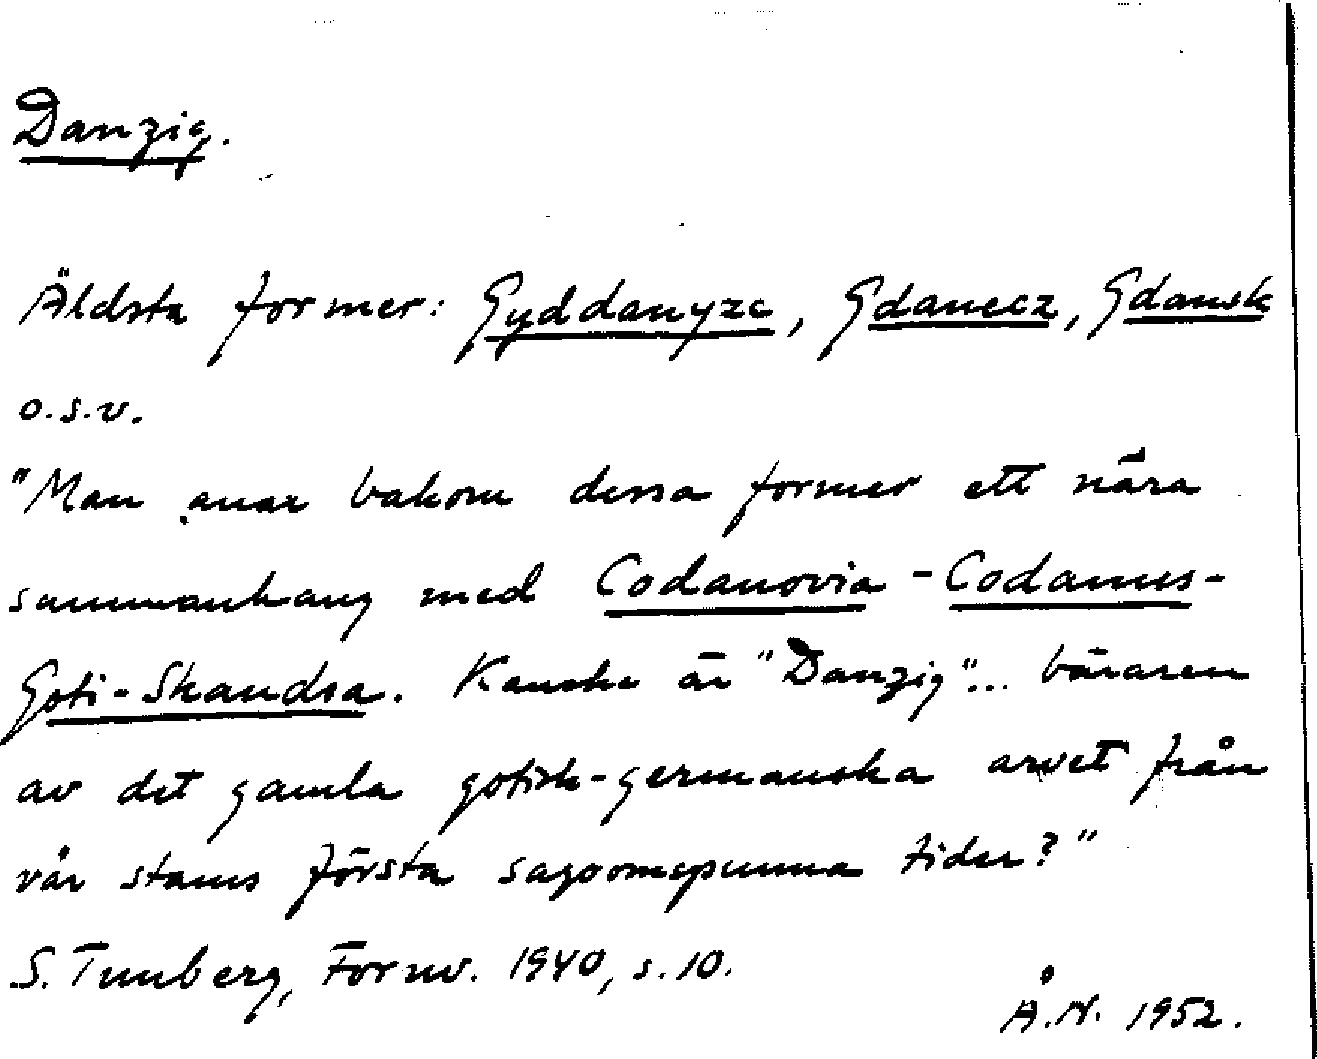 Danzig.
Äldsta former: Gyddanyzc, Gdanecz, Gdansk
o.s.v.
"Man anar bakom dessa former ett nära
sammanhang med Codanovia - Codanus-
Goti-Skandza. Kanske är "Danzig"... bäraren
av det gamla gotisk-germanska arvet från
vår stams första sagoomspunna tider?"
S. Tunberg, Fornv. 1940, s. 10.
Å.N. 1952.